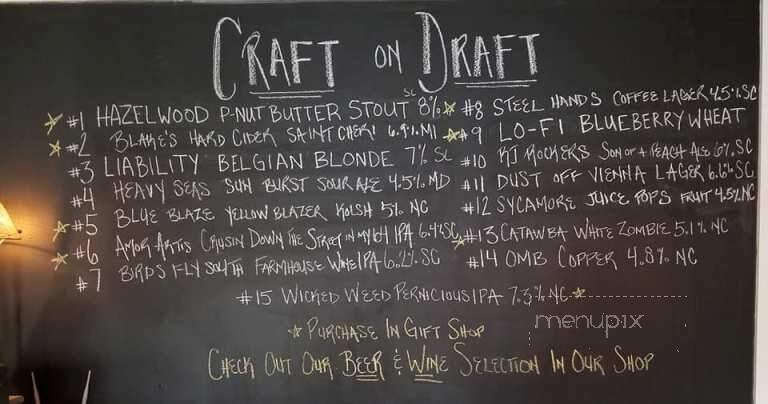 CRAFT ON DRAFT
★ #1 HAZELWOOD P-NUT BUTTER STOUT 8% SC
★ #2 BLAKE'S HARD CIDER SAINT CHERI 6.9% MI
#3 LIABILITY BELGIAN BLONDE 7% SC
#4 HEAVY SEAS SUN BURST SOUR ALE 4.5% MD
★ #5 BLUE BLAZE YELLOW BLAZER KOLSH 5% NC
★ #6 AMOR ARTIS CRUSIN DOWN THE STREET IN MY 64 IPA 6.4% SC
#7 BIRDS FLY SOUTH FARMHOUSE WINE IPA 6.2% SC
★ #8 STEEL HANDS COFFEE LAGER 4.5% SC
★ #9 LO-FI BLUEBERRY WHEAT
#10 RJ ROCKERS SON OF A PEACH ALE 6% SC
#11 DUST OFF VIENNA LAGER 6.6% SC
#12 SYCAMORE JUICE POPS FRUIT 4.5% NC
★ #13 CATAWBA WHITE ZOMBIE 5.1% NC
#14 OMB COPPER 4.8% NC
#15 WICKED WEED PERNICIOUS IPA 7.3% NC ★
menupix
★ PURCHASE IN GIFT SHOP
CHECK OUT OUR BEER & WINE SELECTION IN OUR SHOP